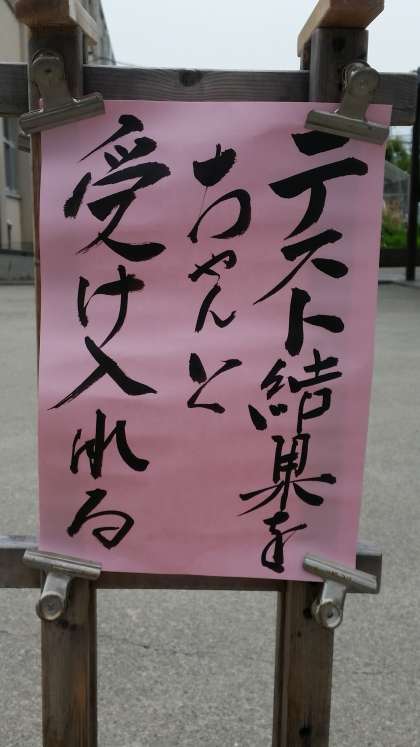 テスト結果を
ちゃんと
受け入れる